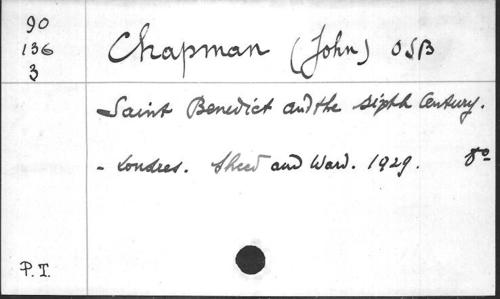 90
136
3
Chapman (John) OSB
Saint Benedict and the sixth Century.
- Londres. Sheed and Ward. 1929. 8º
P.T.